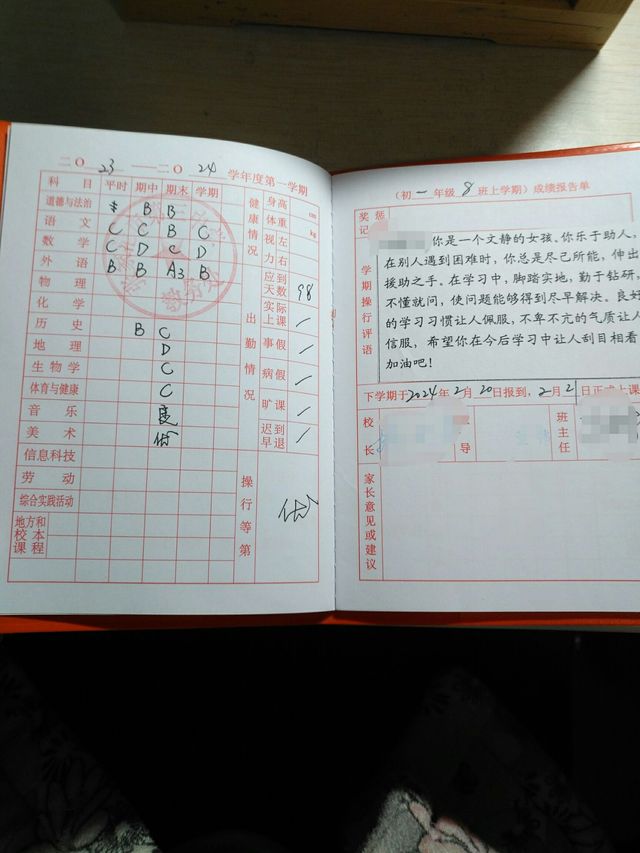 二〇23——二〇24学年度第一学期
科目 平时 期中 期末 学期
道德与法治 B B
语文 C C B C
数学 C D C D
外语 B B A3 B
物理
化学
历史 B C
地理 D
生物学 C
体育与健康 C
音乐
美术
信息科技
劳动
综合实践活动
地方和校本课程
健康情况
身高 cm
体重 kg
视力 左 右
出勤情况
应到天数 98
实际上课 /
事假 /
病假 /
旷课 /
迟到早退 /
操行等第
(初一年级8班上学期)成绩报告单
奖惩记
学期操行评语
你是一个文静的女孩。你乐于助人，
在别人遇到困难时，你总是尽己所能，伸出
援助之手。在学习中，脚踏实地，勤于钻研，
不懂就问，使问题能够得到尽早解决。良好
的学习习惯让人佩服，不卑不亢的气质让人
信服，希望你在今后学习中让人刮目相看
加油吧！
下学期于2024年2月20日报到，2月2日正式上课
校长
导
班主任
家长意见或建议